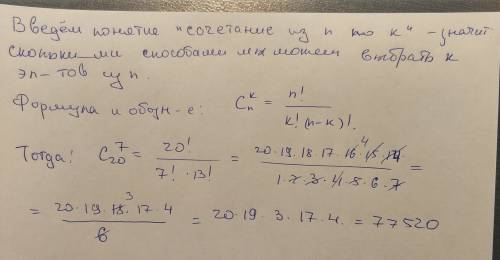 Введём понятие "сочетание из n по к" - значит
сколькими способами мы можем выбрать к
эл-тов из n.
Формула и обозн-е: C_n^k = n! / k!(n-k)!.
Тогда: C_20^7 = 20! / 7! · 13! = 20·19·18·17·16·15·14 / 1·2·3·4·5·6·7 =
= 20·19·18·17·4 / 6 = 20·19·3·17·4. = 77520